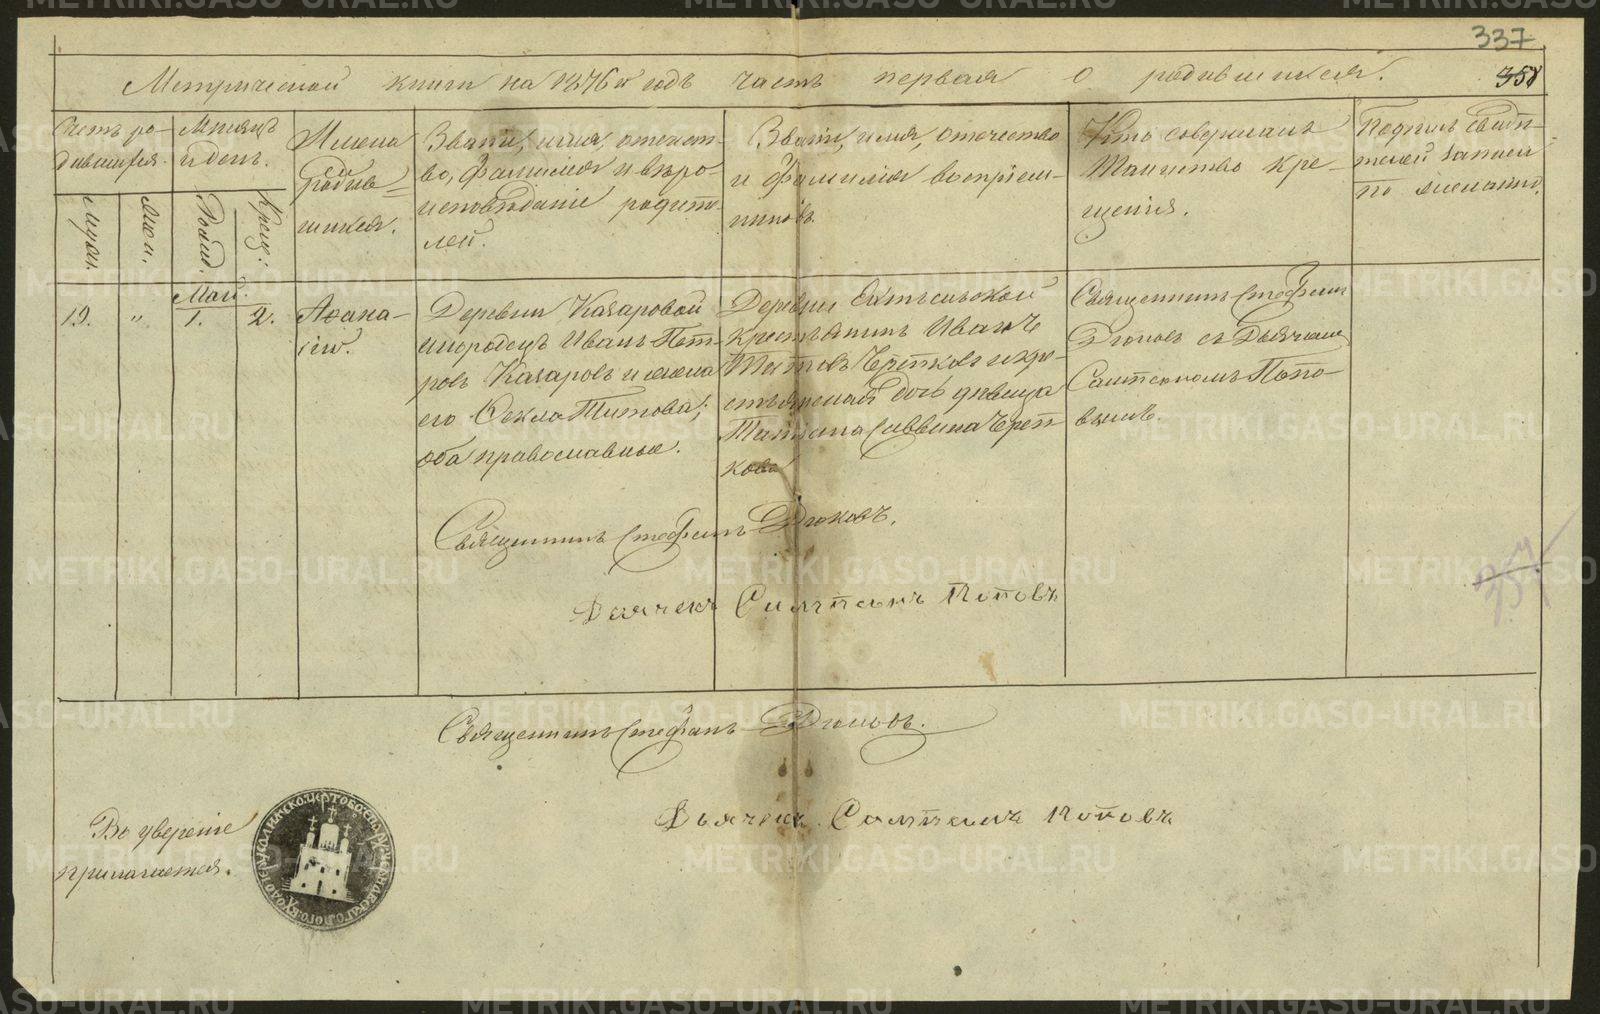 337
Метрической книги на 1876й годъ часть первая о родившихся.
358
Счетъ ро-
дившихся.
Мѣсяцъ
и день.
Имена
родив-
шихся.
Званіе, имя, отечест-
во, фамилія и вѣро-
исповѣданіе родите-
лей.
Званіе, имя, отечество
и фамилія воспріем-
никовъ.
Кто совершалъ
таинство кре-
щенія.
Подпись свидѣ-
телей записи
по желанію.
Муж.
Жен.
Рожд.
Крещ.
Май.
19.
"
1.
2.
Аѳана-
сій.
Деревни Казаровой
инородецъ Иванъ Пет-
ровъ Казаровъ и жена
его Ѳекла Титова;
оба православные.
Деревни
крестьянинъ Иванъ
Титовъ Черепковъ и кре-
стьянская дочь дѣвица
Татіана Саввина Череп-
кова
Священникъ Стефанъ
Дюковъ съ Дьячкомъ
Самсономъ Попо-
вымъ.
Священникъ Стефанъ Дюковъ.
Дьячекъ Сампсонъ Поповъ
357
Священникъ Стефанъ Дюковъ.
Дьячекъ Сампсонъ Поповъ
Во увереніе
прилагается.
METRIKI.GASO-URAL.RU